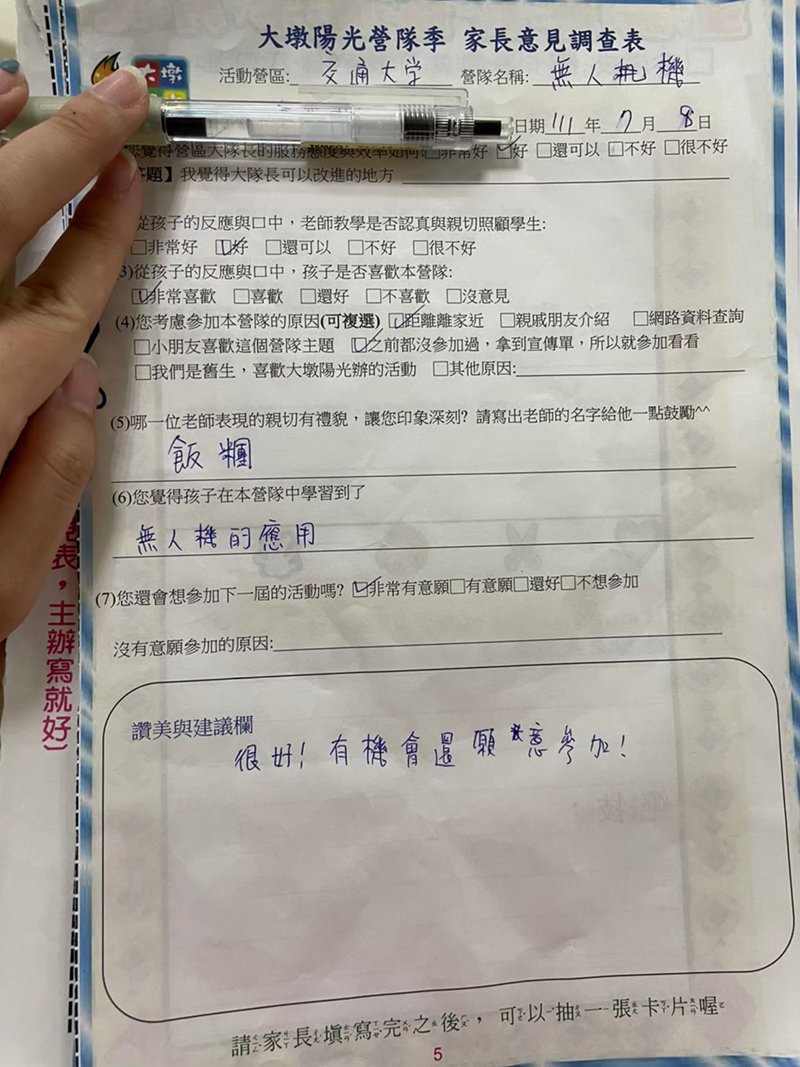 大墩陽光營隊季 家長意見調查表
大墩
活動營區: 交通大学 營隊名稱: 無人机機
日期 111 年 7 月 8 日
您覺得營區大隊長的服務態度與效率如何:□非常好 ☑好 □還可以 □不好 □很不好
答題】我覺得大隊長可以改進的地方
從孩子的反應與口中，老師教學是否認真與親切照顧學生:
□非常好 ☑好 □還可以 □不好 □很不好
3)從孩子的反應與口中，孩子是否喜歡本營隊:
☑非常喜歡 □喜歡 □還好 □不喜歡 □沒意見
(4)您考慮參加本營隊的原因(可複選) ☑距離離家近 □親戚朋友介紹 □網路資料查詢
□小朋友喜歡這個營隊主題 ☑之前都沒參加過，拿到宣傳單，所以就參加看看
□我們是舊生，喜歡大墩陽光辦的活動 □其他原因:
(5)哪一位老師表現的親切有禮貌，讓您印象深刻? 請寫出老師的名字給他一點鼓勵^^
飯糰
(6)您覺得孩子在本營隊中學習到了
無人機的應用
(7)您還會想參加下一屆的活動嗎? ☑非常有意願□有意願□還好□不想參加
沒有意願參加的原因:
讚美與建議欄
很好! 有機會還願意參加!
請家長填寫完之後，可以抽一張卡片喔
5
表，主辦寫就好)